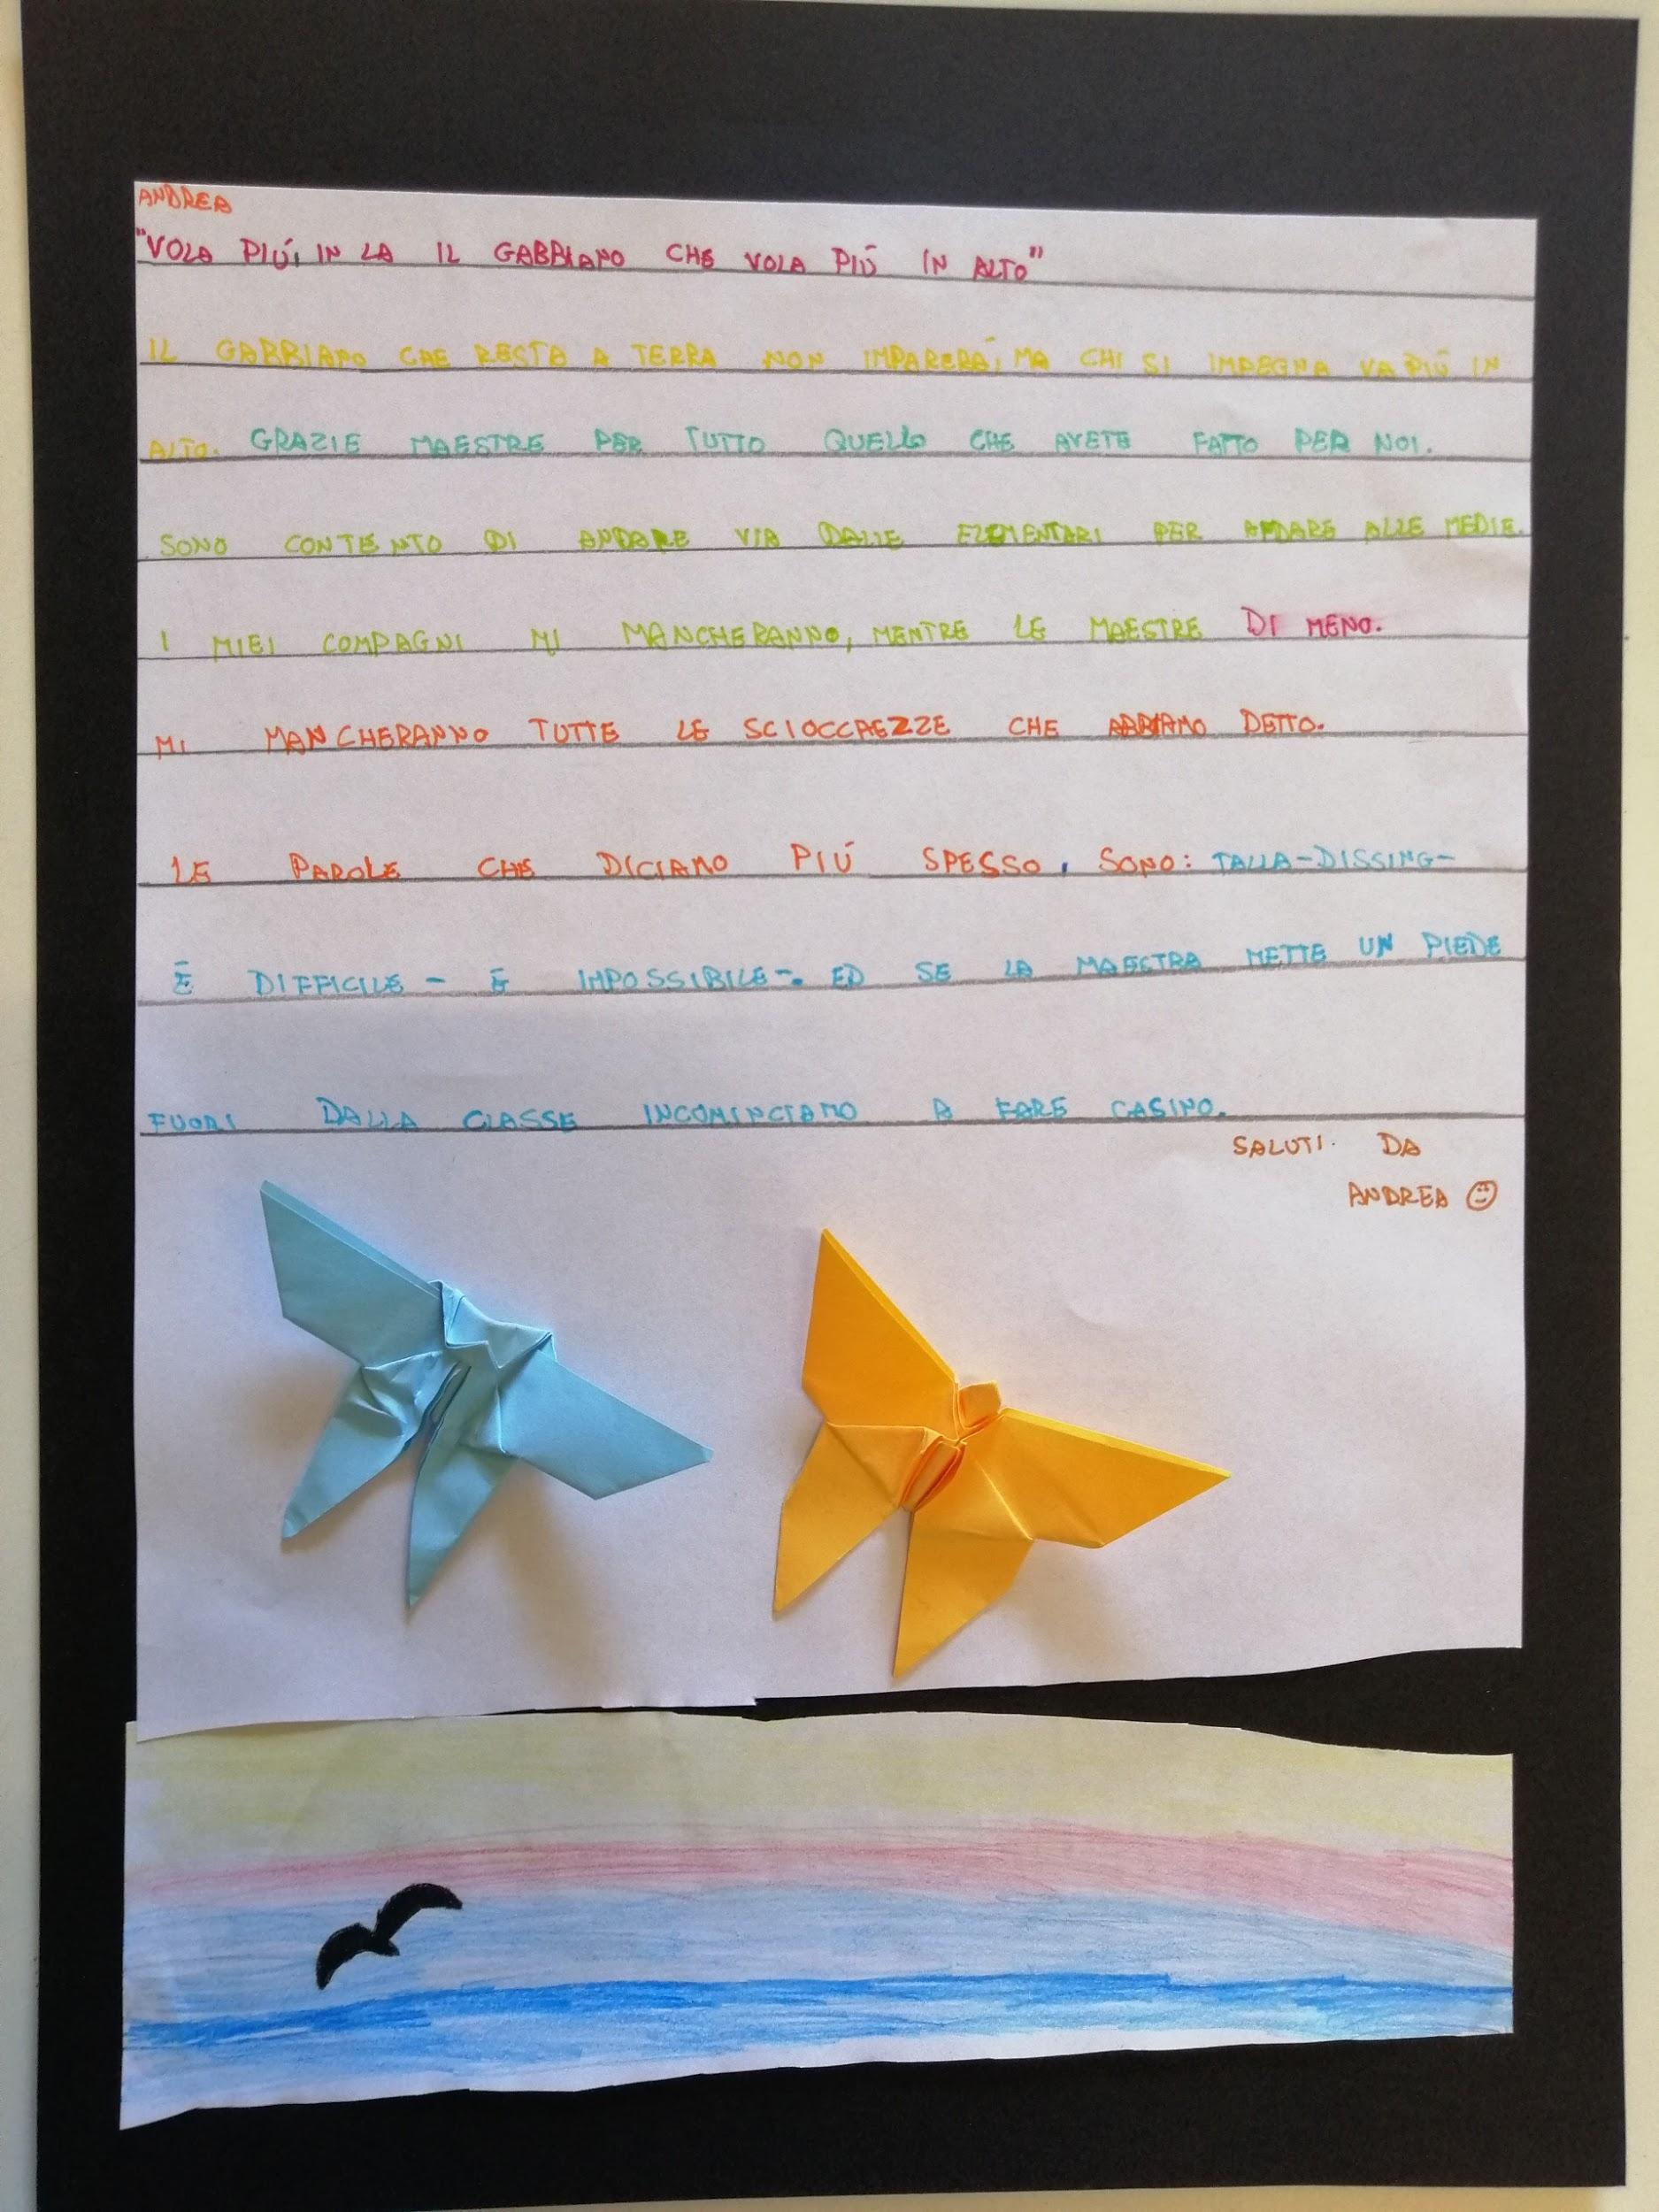 ANDREA
"VOLA PIÚ, IN LA IL GABBIANO CHE VOLA PIÚ IN ALTO"
IL GABBIANO CHE RESTA A TERRA NON IMPARERÁ, MA CHI SI IMPEGNA VA PIÚ IN
ALTO. GRAZIE MAESTRE PER TUTTO QUELLO CHE AVETE FATTO PER NOI.
SONO CONTENTO DI ANDARE VIA DALLE ELEMENTARI PER ANDARE ALLE MEDIE.
I MIEI COMPAGNI MI MANCHERANNO, MENTRE LE MAESTRE DI MENO.
MI MANCHERANNO TUTTE LE SCIOCCHEZZE CHE ABBIAMO DETTO.
LE PAROLE CHE DICIAMO PIÚ SPESSO, SONO: TALLA-DISSING-
É DIFFICILE - É IMPOSSIBILE-. ED SE LA MAESTRA METTE UN PIEDE
FUORI DALLA CLASSE INCOMINCIAMO A FARE CASINO.
SALUTI. DA
ANDREA